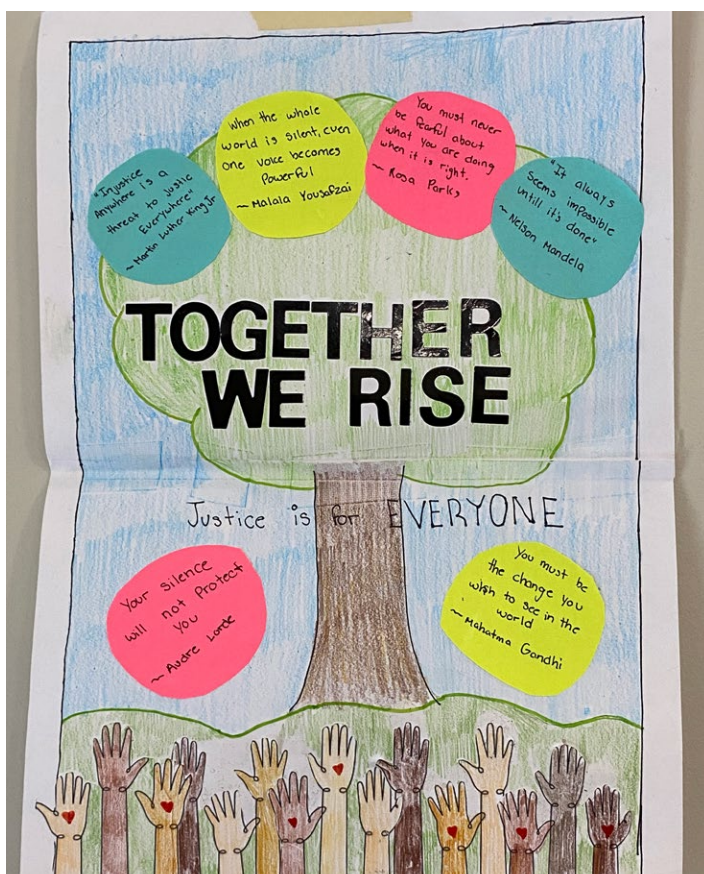 "Injustice
Anywhere is a
threat to justic
Everywhere"
~ Martin Luther King Jr
When the whole
world is silent, even
one voice becomes
Powerful
~ Malala Yousafzai
You must never
be fearful about
what you are doing
when it is right.
~ Rosa Parks
"It always
seems impossible
untill it's done"
~ Nelson Mandela
TOGETHER
WE RISE
Justice is for EVERYONE
Your silence
will not Protect
you
~ Audre Lorde
You must be
the change you
wish to see in the
world
~ Mahatma Gandhi